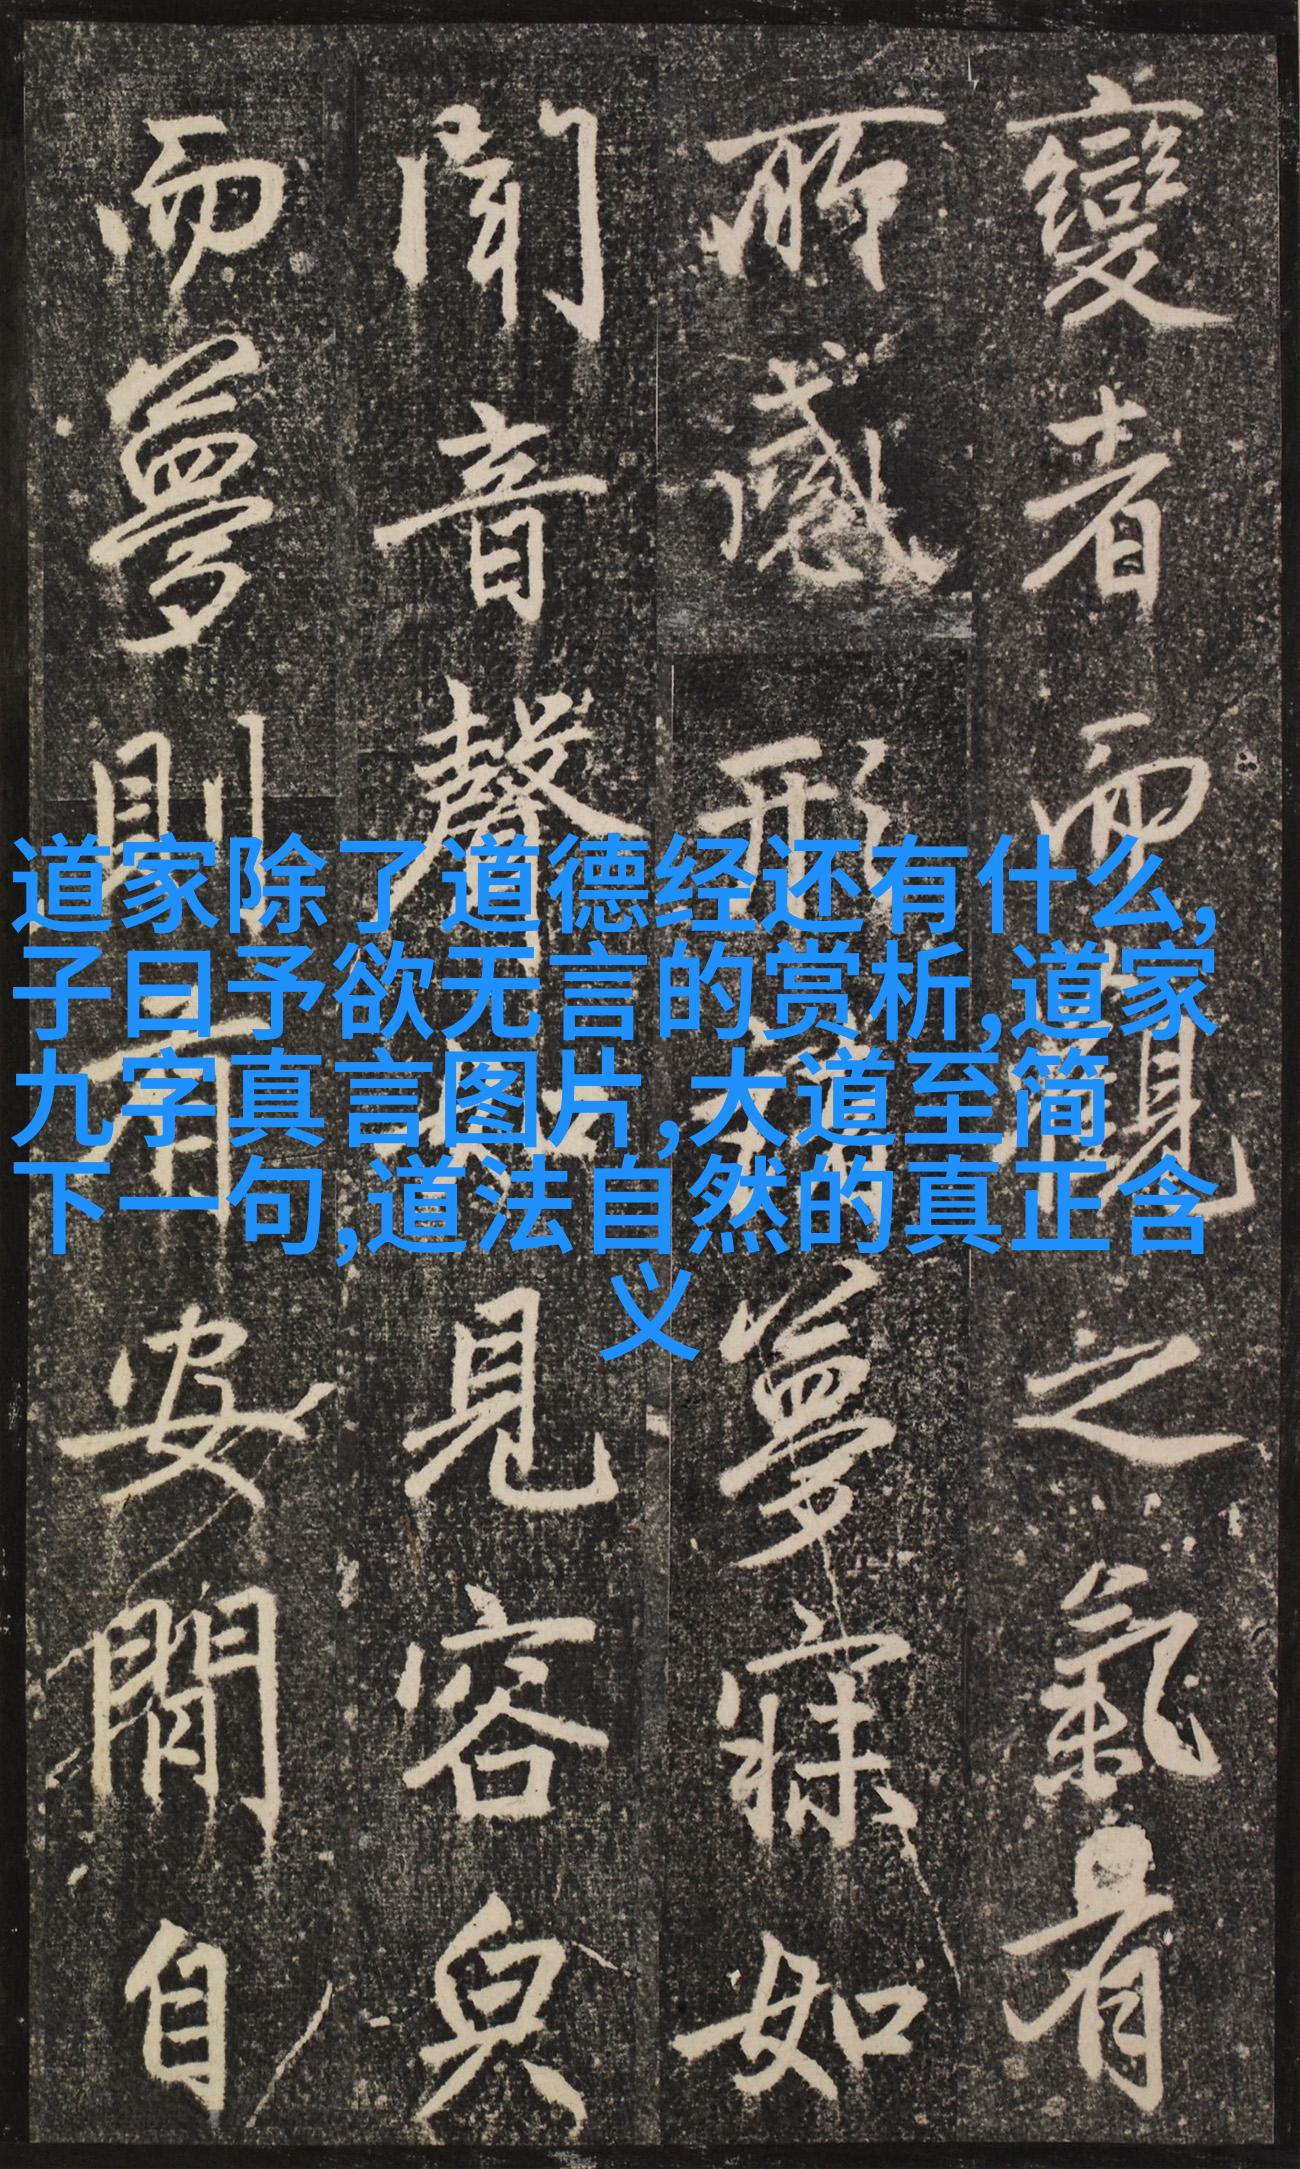 變者而之氣有
所感形夢寐如
聞音聲如見容皃
而夢則安閒自
道家除了道德经还有什么,
子曰予欲无言的赏析,道家
九字真言图片,大道至简
下一句,道法自然的真正含
义